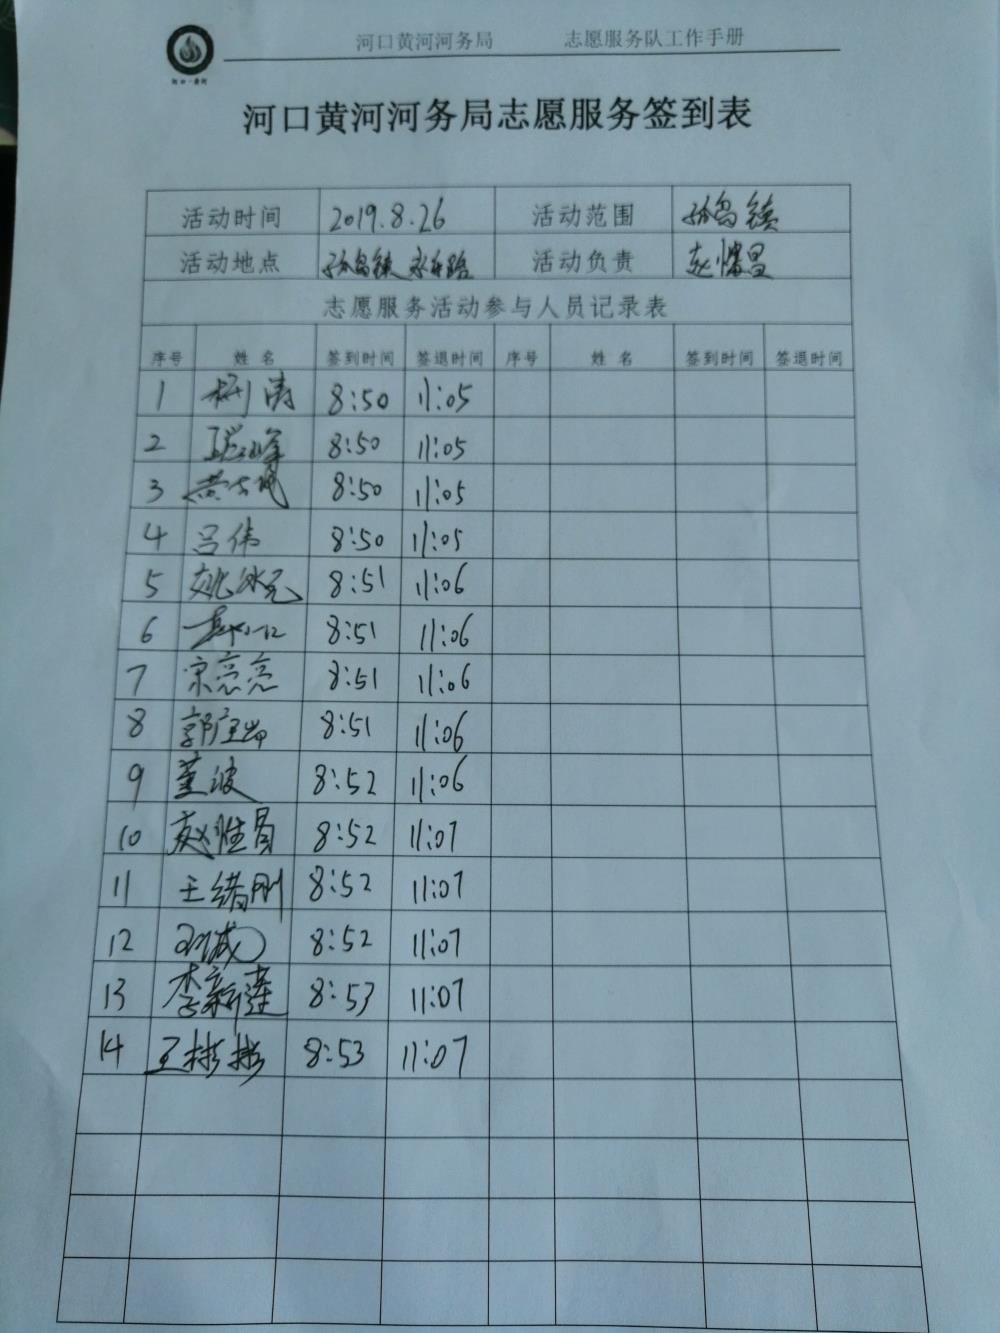 河口黄河河务局 志愿服务队工作手册
河口·黄河
河口黄河河务局志愿服务签到表
活动时间 2019.8.26 活动范围 孤岛镇
活动地点 孤岛镇 永乐路 活动负责 赵
志愿服务活动参与人员记录表
序号 姓名 签到时间 签退时间 序号 姓名 签到时间 签退时间
1 涛 8:50 11:05
2 峰 8:50 11:05
3 黄 8:50 11:05
4 吕伟 8:50 11:05
5 姚 8:51 11:06
6 8:51 11:06
7 宋亮亮 8:51 11:06
8 郭 8:51 11:06
9 董波 8:52 11:06
10 赵 8:52 11:07
11 王绪刚 8:52 11:07
12 8:52 11:07
13 李新莲 8:53 11:07
14 王彬彬 8:53 11:07